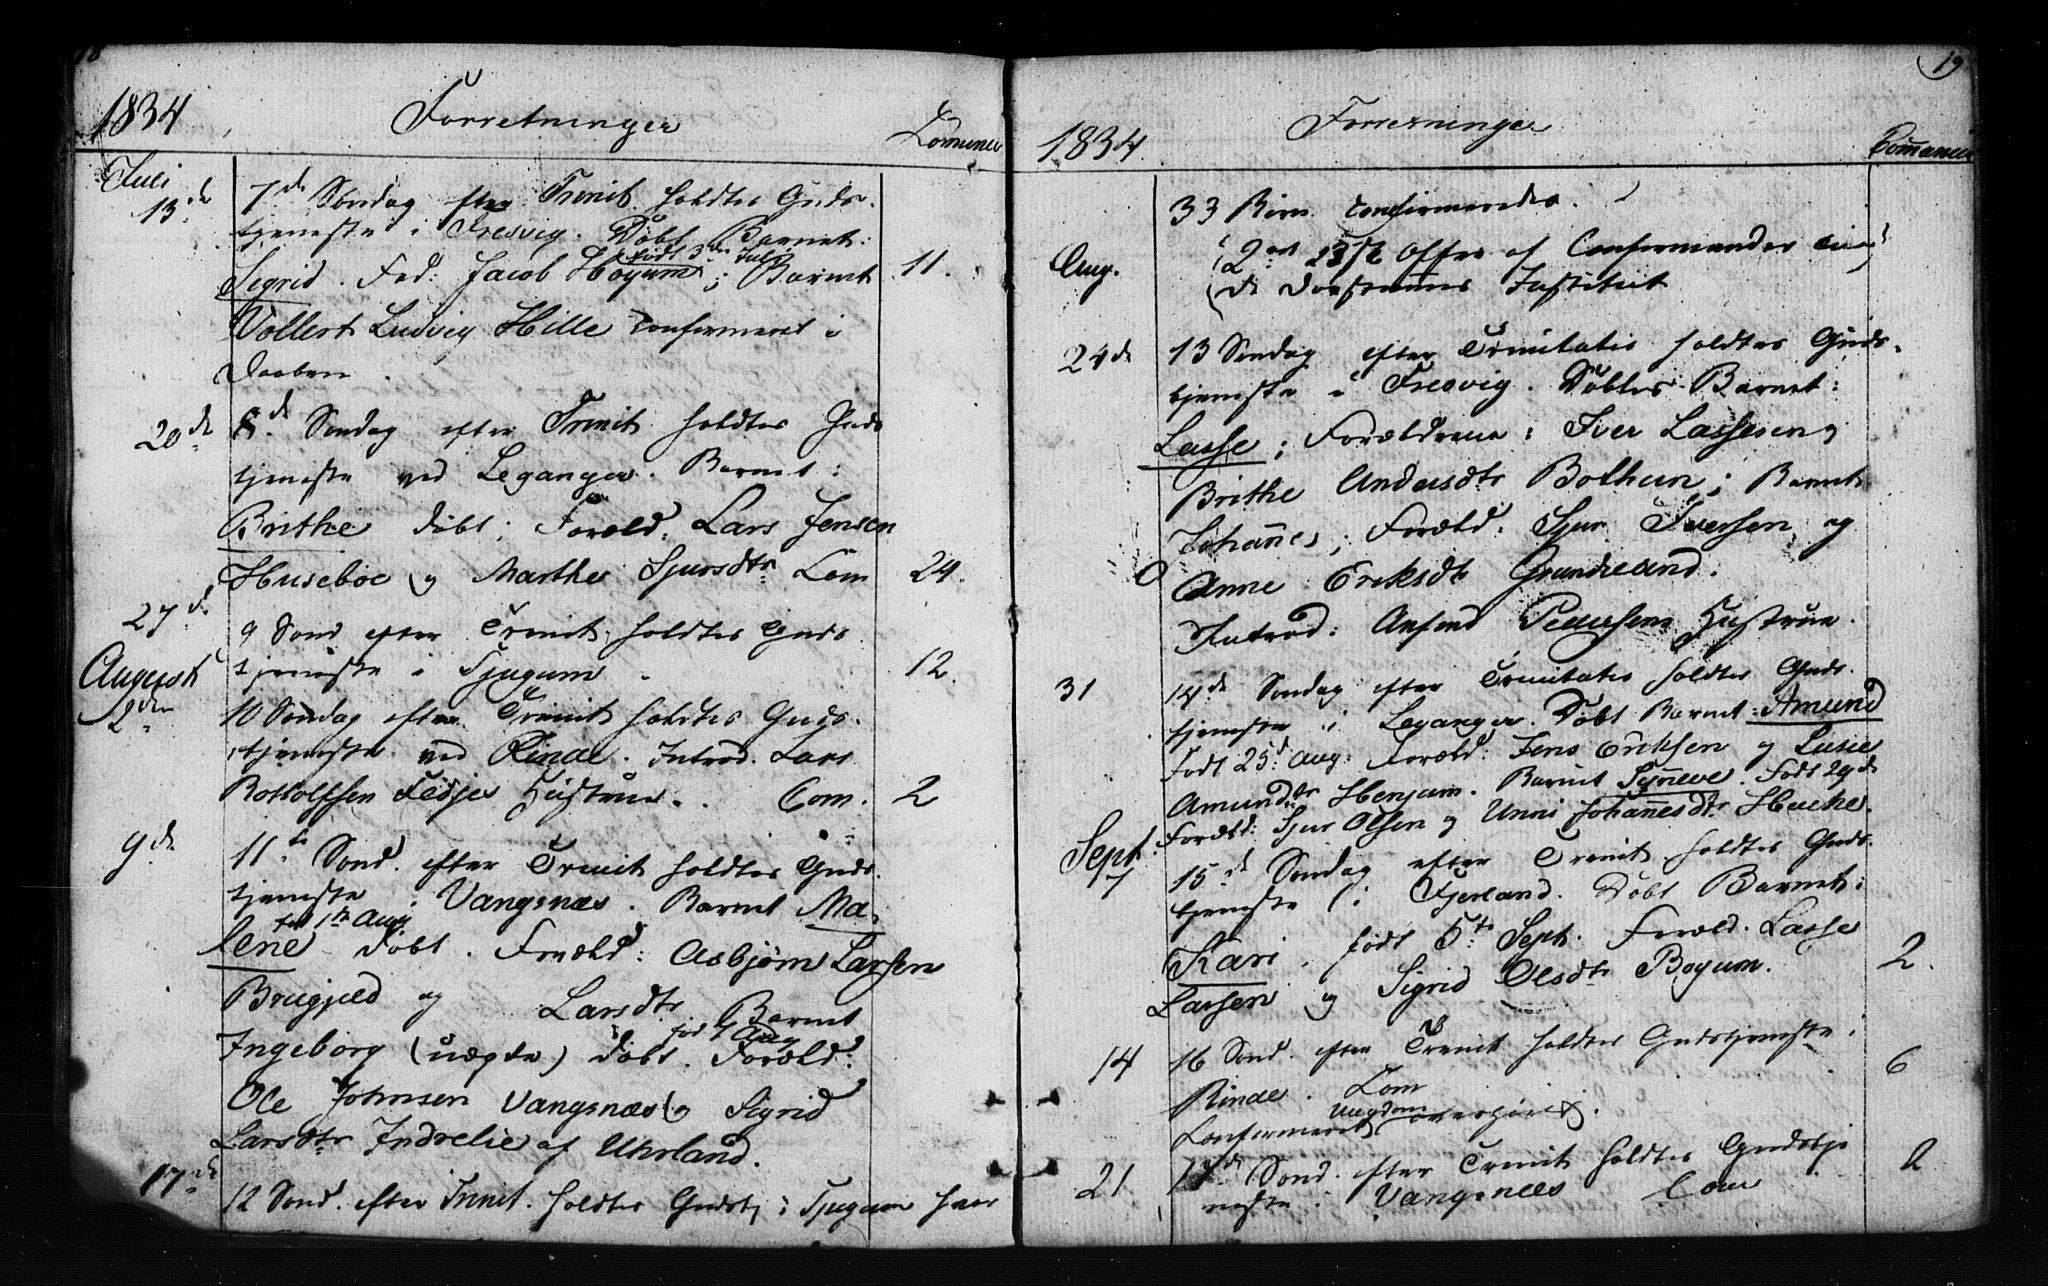 18
1834 Forretninger Commun
Juli
13de 7de Søndag efter Trinit. holdtes Guds-
tjeneste i Fresvig. Døbt Barnet:
født 3die Juli
Sigrid. Fad: Jacob Høyum; Barnet 11.
Vollert Ludvig Hille confirmeret i
Daaben.
20de 8de Søndag efter Trinit holdtes Guds
tjeneste ved Leganger. Barnet:
Brithe døbt; Foræld: Lars Jensen
Huseboe og Marthe Sjursdtr Com 24.
27de 9 Sønd efter Trinit holdtes Guds
tjeneste i Tjugum. 12.
August
2den 10 Søndag efter Trinit holdtes Guds-
tjeneste ved Rinde. Introd. Lars
Botholfsen Fedje Hustrue. Com. 2
9de 11te Sønd. efter Trinit holdtes Guds-
tjeneste i Vangsnæs. Barnet Ma-
1ste Aug
lene døbt. Foræld: Asbjørn Larsen
og Larsdtr Barnet
fød Aug
Ingeborg (uægte) døbt. Foræld:
Ole Johnsen Vangsnæs og Sigrid
Larsdtr Indrelie af Uhrland.
17de 12 Sønd. efter Trinit. holdtes Gudstj i Tjugum hvor
19
1834 Forretninger Commun
33 Børn confirmeredes.
Aug. Offer af Confirmander
Institut
24de 13 Søndag efter Trinitatis holdtes Guds-
tjeneste i Fresvig. Døbtes Barnet:
Lasse; Forældrene: Iver Lassesen og
Brithe Andersdtr Bothun; Barnet
Johannes; Foræld: Sjur Iversen og
Anne Eriksdtr
Introd: Pedersens Hustrue.
31 14de Søndag efter Trinitatis holdtes Guds-
tjeneste i Leganger. Døbt Barnet: Amund
Født 25de Aug: Foræld: Jens Eriksen og Lusie
Amundsdtr Henjum. Barnet Synneve. Født 29de
Foræld: Sjur Olsen og Unni Johannesdtr
Sept.
7 15de Søndag efter Trinit holdtes Guds-
tjeneste i Fjerland. Døbt Barnet:
Kari født 5te Sept. Foræld. Lasse
Larsen og Sigrid Olsdtr Bøyum. 2.
14 16 Sønd. efter Trinit holdtes Gudstjeneste i
Rinde. Com 6
Ungdom
Confirmeret overhørt.
21 17de Sønd. efter Trinit holdtes Gudstje
neste i Vangsnæs Com 2